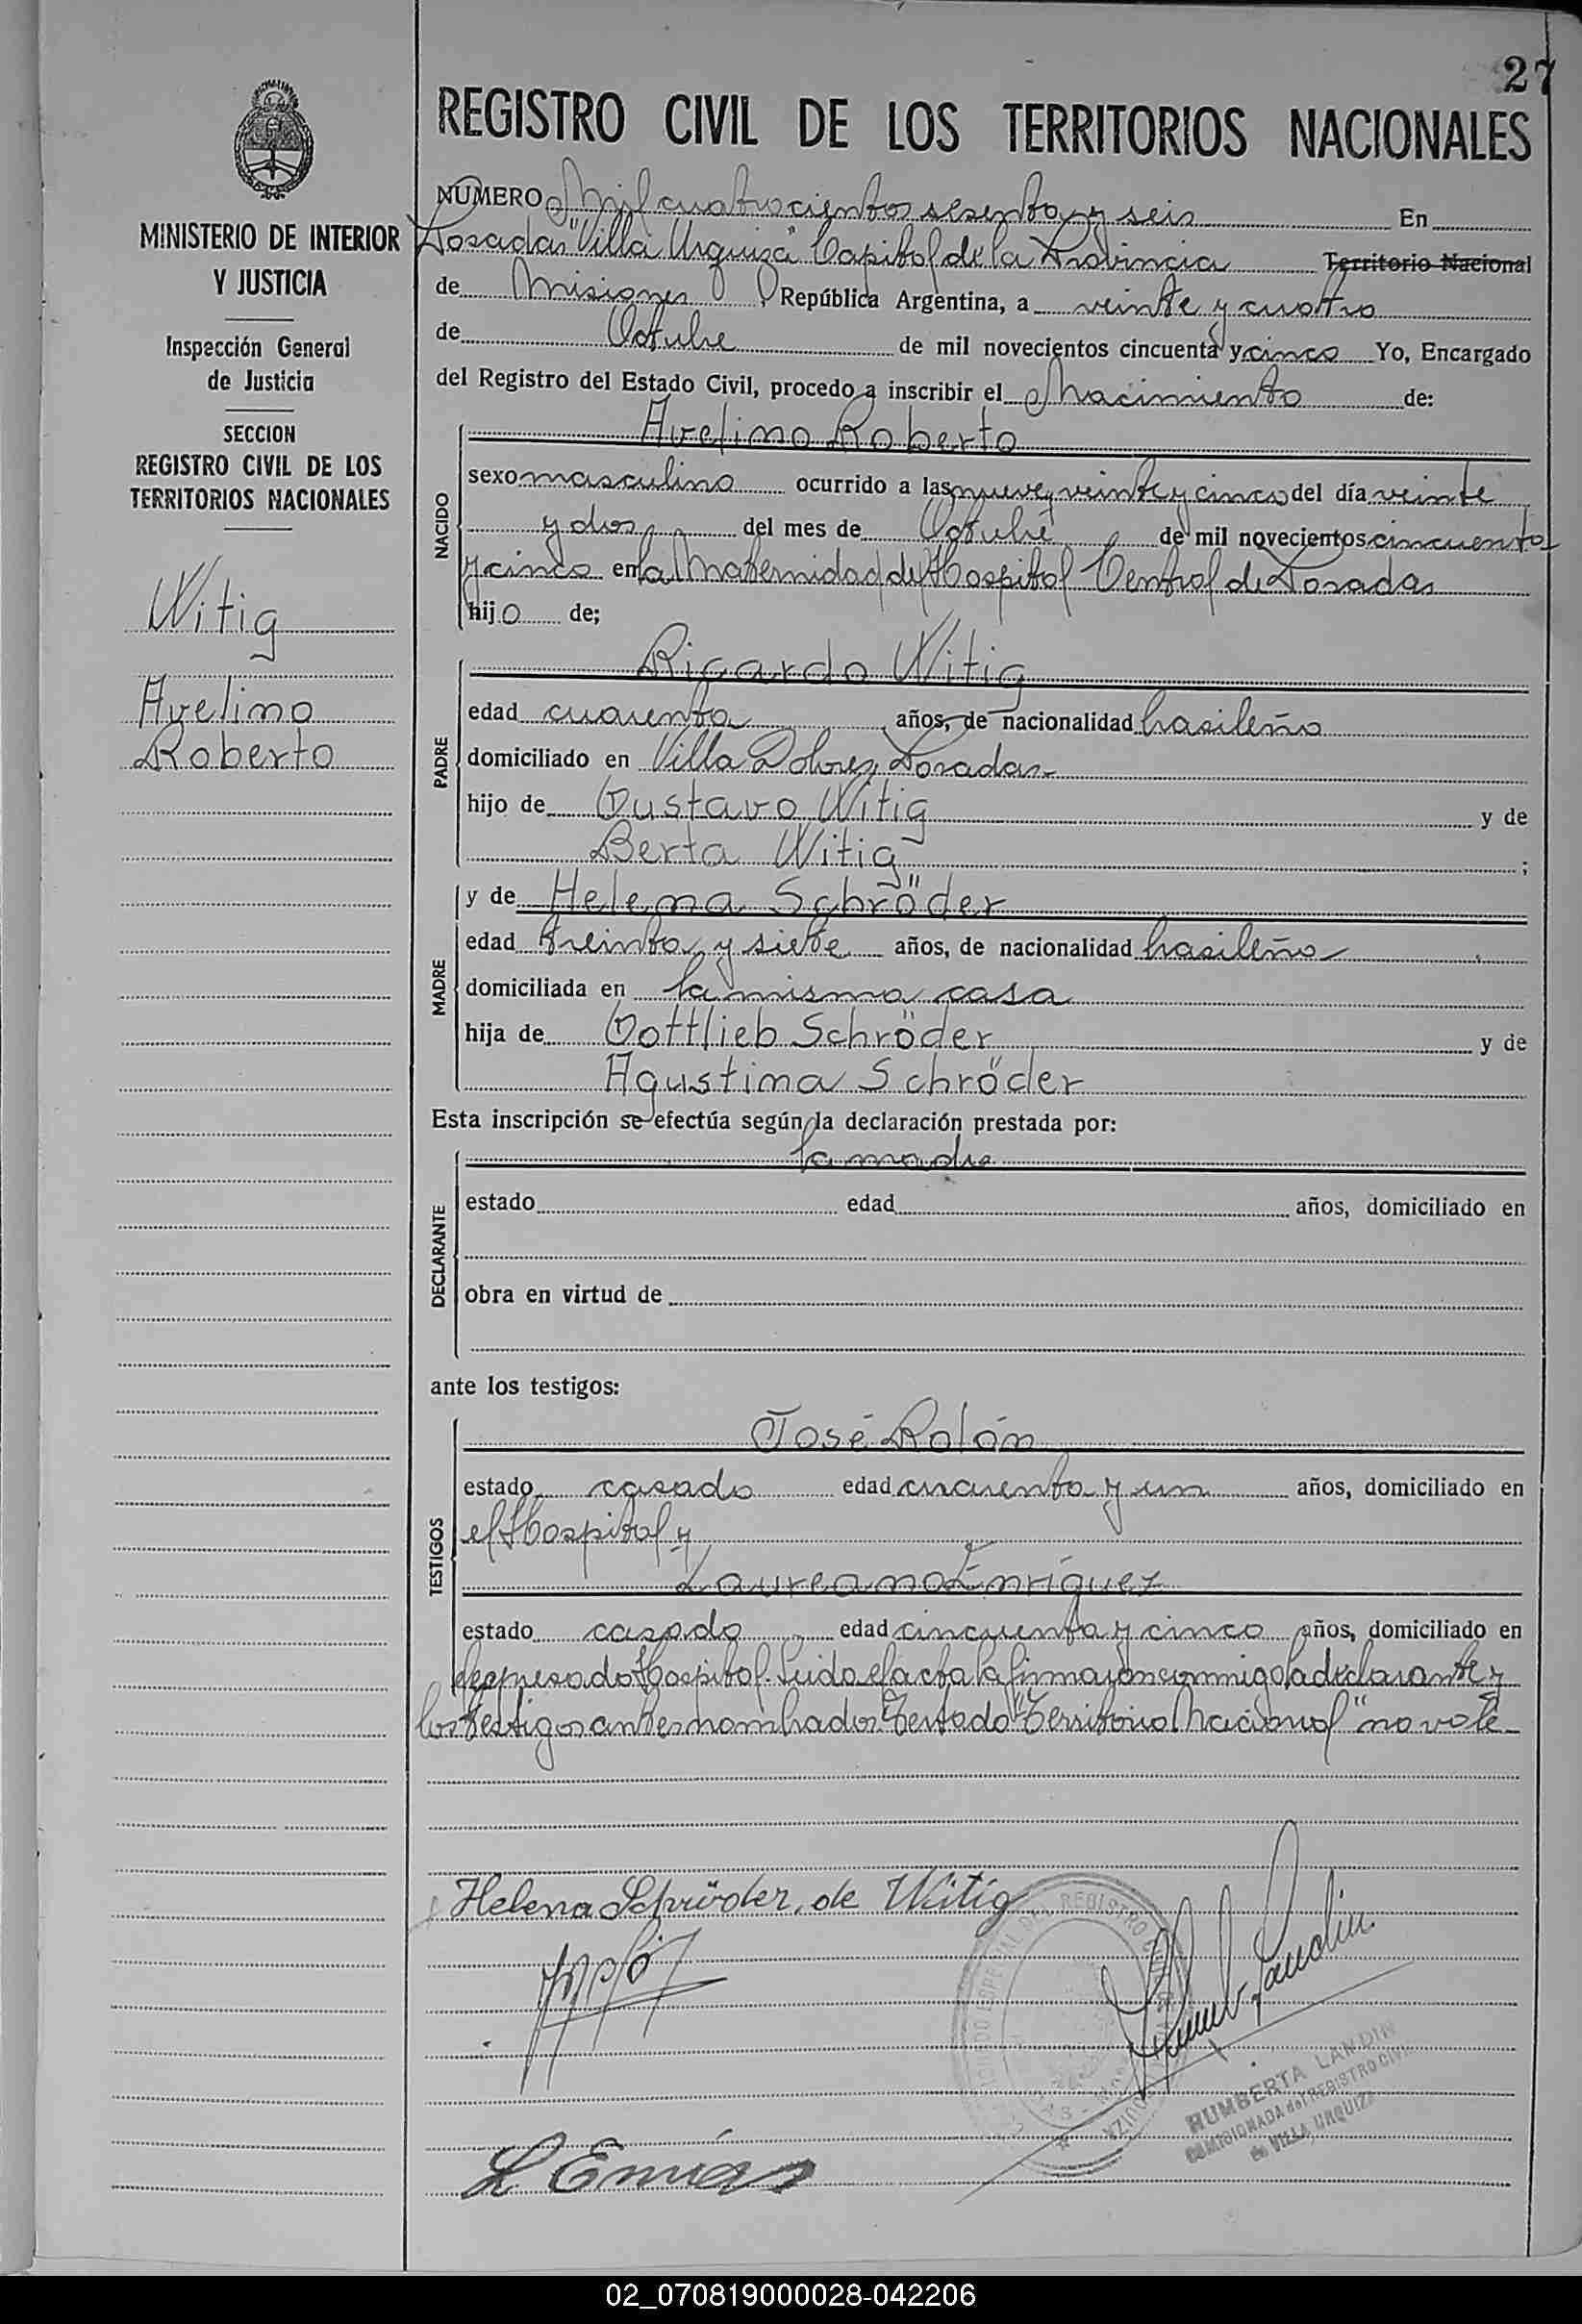 27
REGISTRO CIVIL DE LOS TERRITORIOS NACIONALES
MINISTERIO DE INTERIOR
Y JUSTICIA
Inspección General
de Justicia
SECCION
REGISTRO CIVIL DE LOS
TERRITORIOS NACIONALES
Witig
Avelino
Roberto
NUMERO Mil cuatrocientos sesenta y seis En
Posadas "Villa Urquiza" Capital de la Provincia Territorio Nacional
de Misiones República Argentina, a veinte y cuatro
de Octubre de mil novecientos cincuenta y cinco Yo, Encargado
del Registro del Estado Civil, procedo a inscribir el Nacimiento de:
NACIDO
Avelino Roberto
sexo masculino ocurrido a las nueve y veinte y cinco del día veinte
y dos del mes de Octubre de mil novecientos cincuenta
y cinco en la Maternidad del Hospital Central de Posadas
hijo de;
PADRE
Ricardo Witig
edad cuarenta años, de nacionalidad brasileño
domiciliado en Villa Dolores, Posadas
hijo de Gustavo Witig y de
Berta Witig ;
MADRE
y de Helena Schröder
edad treinta y siete años, de nacionalidad brasileño
domiciliada en la misma casa
hija de Gottlieb Schröder y de
Agustina Schröder
Esta inscripción se efectúa según la declaración prestada por:
DECLARANTE
la madre
estado edad años, domiciliado en
obra en virtud de
ante los testigos:
TESTIGOS
José Rolón
estado casado edad cuarenta y un años, domiciliado en
el Hospital y
Laureano Enríquez
estado casado edad cincuenta y cinco años, domiciliado en
el expresado Hospital. Leida el acta la firmaron conmigo la declarante y
los testigos antes nombrados. Testado "Territorio Nacional" no vale
Helena Schröder, de Witig
REGISTRO
HUMBERTA LANDIN
COMISIONADA del REGISTRO CIVIL
de VILLA URQUIZA
02_070819000028-042206